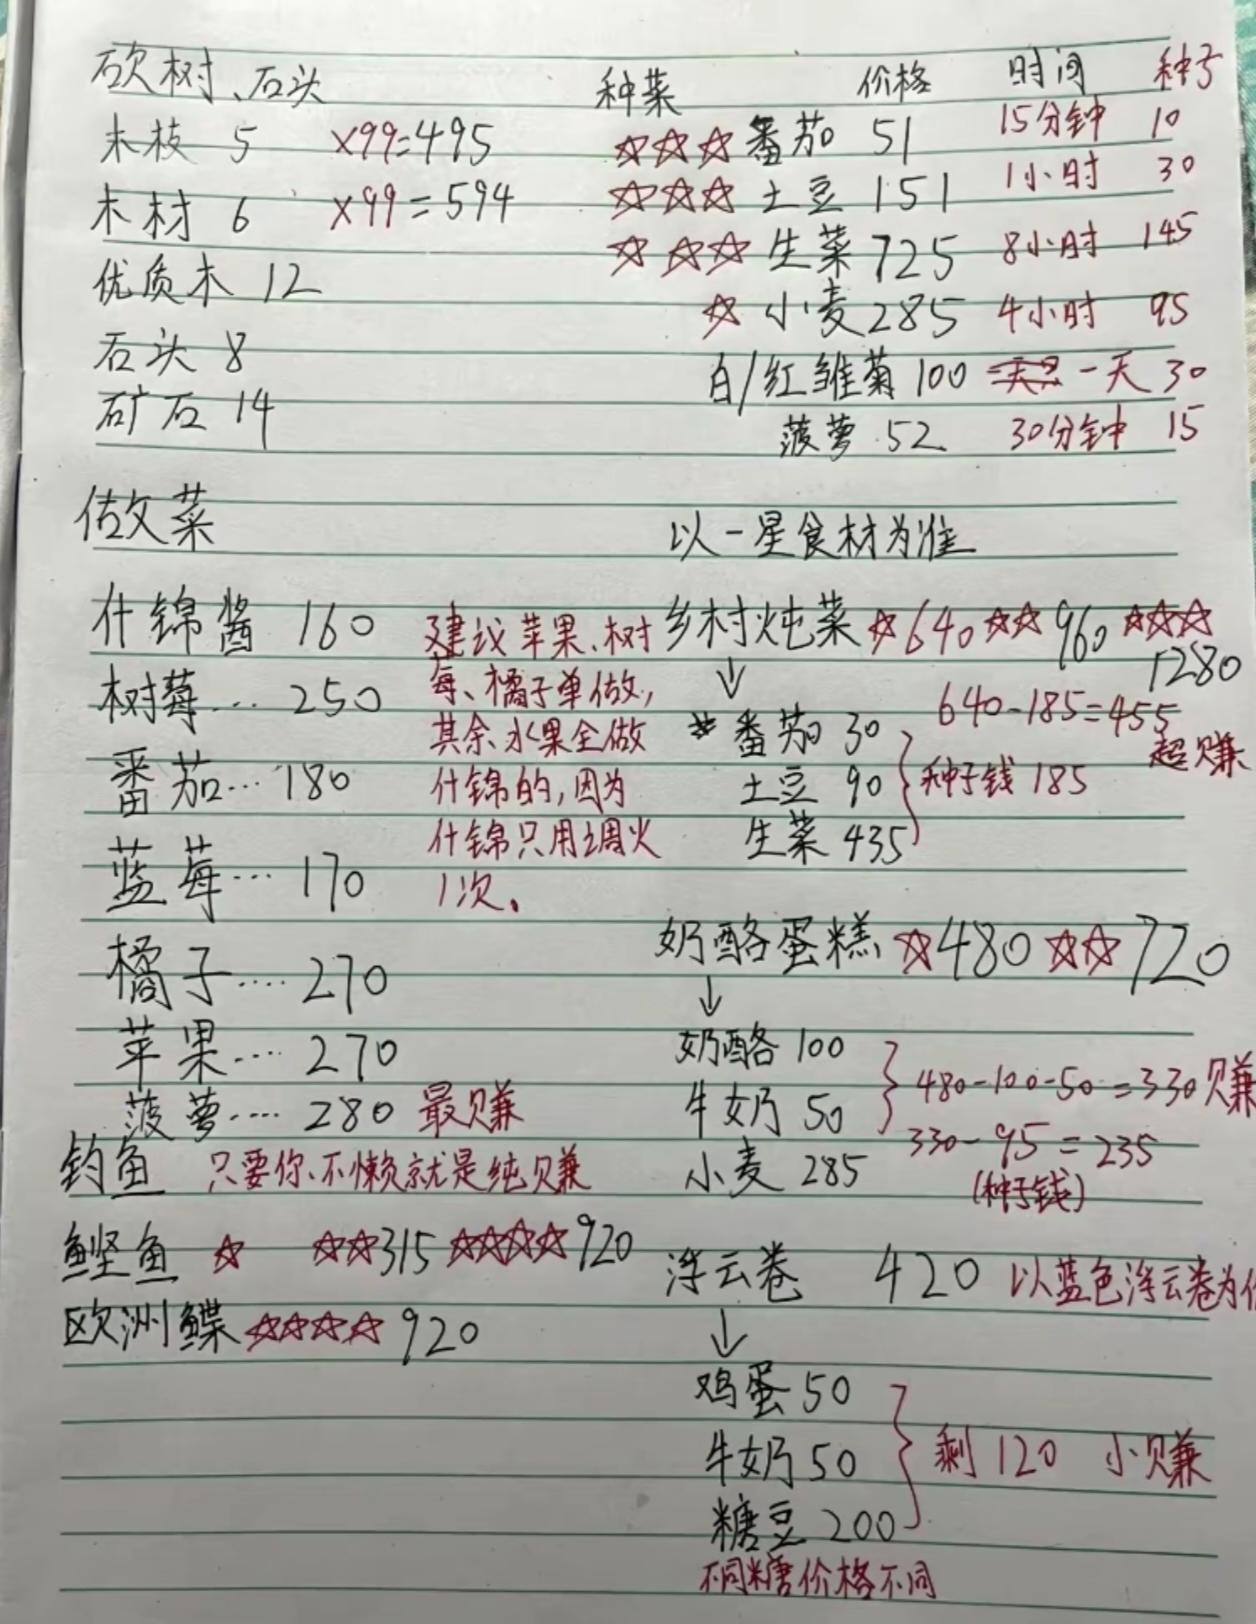 砍树、石头
木枝 5 ×99=495
木材 6 ×99=594
优质木 12
石头 8
矿石 14
种菜 价格 时间 种子
☆☆☆番茄 51 15分钟 10
☆☆☆土豆 151 1小时 30
☆☆☆生菜 725 8小时 145
☆小麦 285 4小时 95
白/红雏菊 100 一天 30
菠萝 52 30分钟 15
做菜
以一星食材为准
什锦酱 160
树莓… 250
番茄… 180
蓝莓… 170
橘子…. 270
苹果…. 270
菠萝…. 280 最赚
建议苹果、树
莓、橘子单做,
其余水果全做
什锦的,因为
什锦只用调火
1次。
乡村炖菜☆640☆☆960☆☆☆
1280
↓
番茄 30
土豆 90
生菜 435
种子钱 185
640-185=455
超赚
奶酪蛋糕☆480☆☆720
↓
奶酪 100
牛奶 50
小麦 285
480-100-50=330赚
330-95=235
(种子钱)
钓鱼 只要你不懒就是纯赚
鲣鱼 ☆ ☆☆315 ☆☆☆☆920
欧洲鲽☆☆☆☆920
浮云卷 420 以蓝色浮云卷为
↓
鸡蛋 50
牛奶 50
糖豆 200
剩 120 小赚
不同糖价格不同